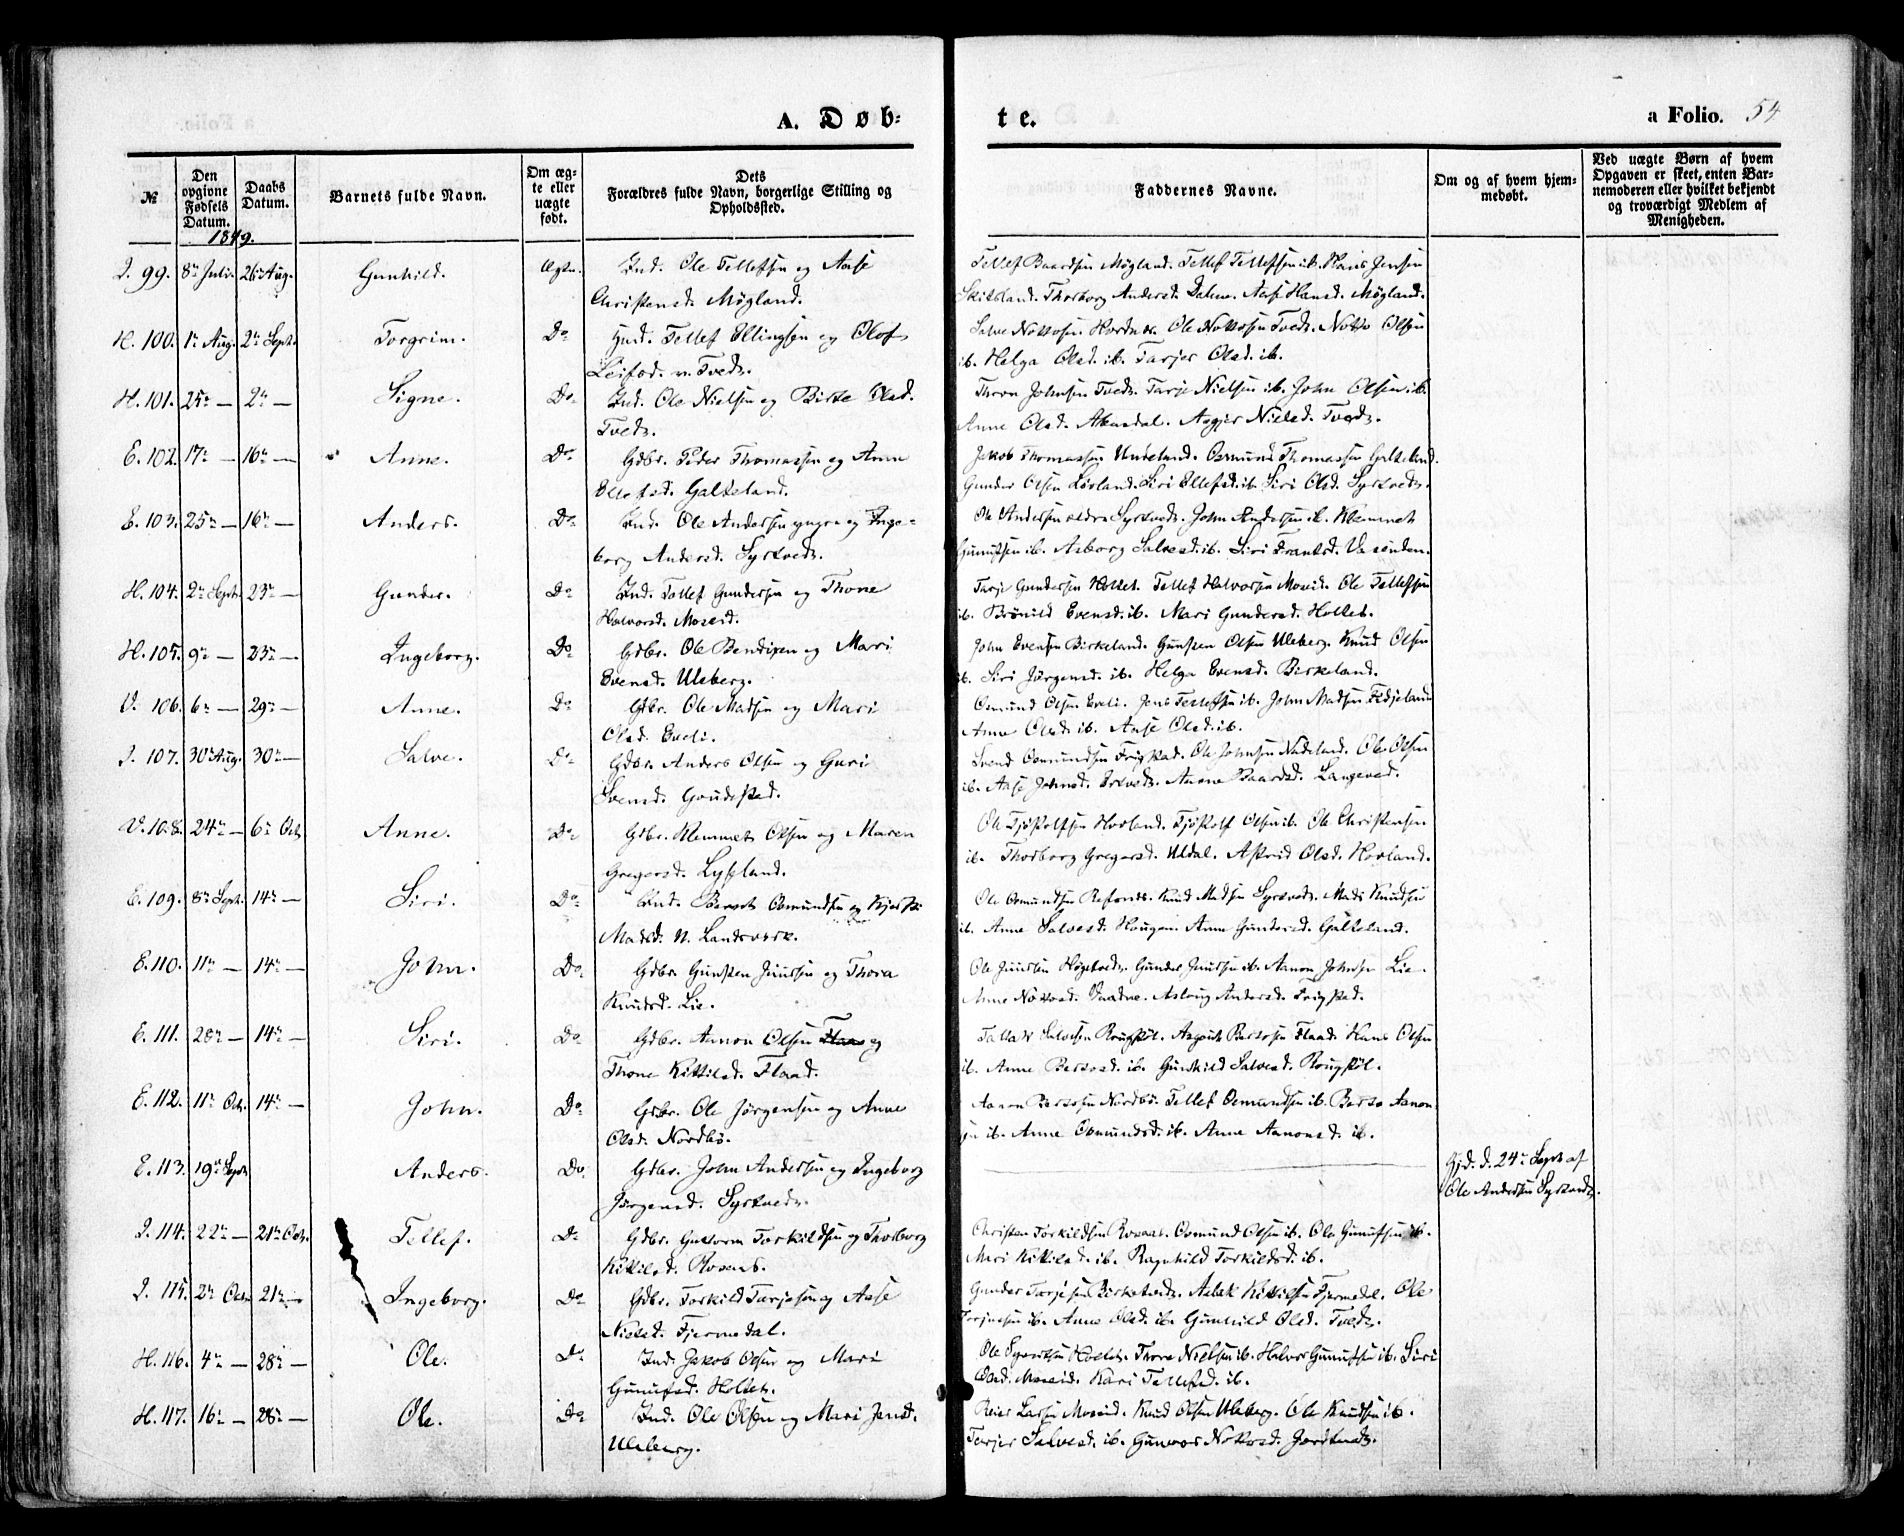 A. Døb=
te.
a Folio. 54
№
Den opgivne Fødsels Datum.
Daabs Datum.
Barnets fulde Navn.
Om ægte eller uægte født.
Dets Forældres fulde Navn, borgerlige Stilling og Opholdssted.
Faddernes Navne.
Om og af hvem hjemmedøbt.
Ved uægte Børn af hvem Opgaven er skeet, enten Barnemoderen eller hvilket bekjendt og troværdigt Medlem af Menigheden.
1849.
I. 99. 8de Juli. 26de Aug. Gunhild. Ægte. Ind. Ole Tellefsen og Aase
Christensd. Møgland.
Tellef Baardsen Møgland. Tellef Tellefsen ib. Hans Jensen
Thorborg Andersd. Dalene. Aase Hansd. Møgland.
H. 100. 1te Aug. 2den Sept. Torgrim. Do Tellef Ellingsen og Olof
Leifsd. n. Tveds.
Salve Nottosen. Ole Nottosen Tveds. Notto Olsen
ib. Helga Olsd. ib. Tarjer Olsd. ib.
H. 101. 25de — 2den — Signe. Do Ind. Ole Nielsen og Birte Olsd.
Tveds.
Thron Johnsen Tveds. Tarje Nielsen ib. John Olsen ib.
Anne Olsd. Abusdal. Asgjer Nielsd. Tveds.
E. 102. 17de — 16de — Anne. Do Gdbr. Peder Thomassen og Anne
Ellefsd. Galteland.
Jakob Thomassen Undeland. Osmund Thomassen Galteland.
Gunder Olsen Løvland. Siri Ellefsd. ib. Siri Olsd. Syrtveds.
E. 103. 25de — 16de — Anders. Do Ind. Ole Andersen yngre og Inge-
borg Andersd. Syrtveds.
Ole Andersen ældre Syrtveds. John Andersen ib. Klemmet
Gunufsen ib. Asborg Salvesd. ib. Siri Frantsd. Vasenden.
H. 104. 2den Sept. 23de — Gunder. Do Ind. Tellef Gundersen og Thone
Halvorsd. Moseid.
Tarje Gundersen Holtet. Tellef Halvorsen Moseid. Ole Tellefsen
ib. Brønild Evensd. ib. Mari Gundersd. Holtet.
H. 105. 9de — 23de — Ingeborg. Do Gdbr. Ole Bendixen og Mari
Evensd. Uleberg.
John Evensen Birkeland. Gunsten Olsen Uleberg. Knud Olsen
ib. Siri Jørgensd. ib. Helga Evensd. Birkeland.
V. 106. 6te — 29de — Anne. Do Gdbr. Ole Madsen og Mari
Olsd. Eveli.
Osmund Olsen Eveli. Jens Tellefsen ib. John Madsen
Anne Olsd. ib. Aase Olsd. ib.
I. 107. 30de Aug. 30de — Salve. Do Gdbr. Anders Olsen og Guri
Svensd. Goudestad.
Svend Osmundsen Frigstad. Ole Johnsen Nateland. Ole Olsen
ib. Aase Johnsd. Ertveds. Anne Baardsd. Langeved.
V. 108. 24de — 6te Oct. Anne. Do Gdbr. Klemmet Olsen og Maren
Gregersd. Lysland.
Ole Tjøstolfsen Hovland. Tjøstolf Olsen ib. Ole Christensen
ib. Thorborg Gregersd. Uldal. Astrid Olsd. Hovland.
E. 109. 8de Sept. 14de — Siri. Do Ind. Berent Osmundsen og Kjersti
Madsd. n. Landsverk.
Ole Osmundsen Refsnes. Knud Madsen Syrtveds. Mads Knudsen
ib. Anne Salvesd. Hougen. Anne Gundersd. Galteland.
E. 110. 11te — 14de — John. Do Gdbr. Gunsten Juulsen og Thora
Knudsd. Lie.
Ole Juulsen Høgetveds. Gunder Juulsen ib. Aanon Johnsen Lie.
Anne Nottosd. Vaadne. Aslaug Andersd. Frigstad.
E. 111. 28de — 14de — Siri. Do Gdbr. Aanon Olsen Flaas og
Thone Kittilsd. Flaad.
Tallak Salvesen Rougstøl. Asgrim Berthosen Flaad. Hans Olsen
ib. Anne Bersosd. ib. Gunhild Salvesd. Rougstøl.
E. 112. 11te Oct. 14de — John. Do Gdbr. Ole Jørgensen og Anne
Olsd. Nordbø.
Aanon Bersosen Nordbø. Tellef Osmundsen ib. Berso Aanon-
sen ib. Anne Osmundsd. ib. Anne Aanonsd. ib.
E. 113. 19de Sept. Anders. Do Gdbr. John Andersen og Ingeborg
Jørgensd. Syrtveds.
Hjd. d. 24de Sept. af
Ole Andersen Syrtveds.
I. 114. 22de — 21de Oct. Tellef. Do Gdbr. Guttorm Torkildsen og Thorborg
Kittilsd. Rosaas.
Christen Torkildsen Rosaas. Osmund Olsen ib. Ole Gunufsen ib.
Mari Kittilsd. ib. Ragnhild Torkildsd. ib.
I. 115. 2den Oct. 21de — Ingeborg. Do Gdbr. Torkild Tarjesen og Aase
Nielsd. Fjermedal.
Gunder Tarjesen Birketveds. Aslak Kittilsen Fjermedal. Ole
Torjusen ib. Anne Olsd. ib. Gunhild Olsd. Tveds.
H. 116. 4de — 28de — Ole. Do Ind. Jakob Olsen og Mari
Gunufsd. Holtet.
Ole Syvertsen Holtet. Thore Nielsen ib. Halvor Gunufsen ib. Siri
Olsd. Moseid. Kari Tellefsd. ib.
H. 117. 16de — 28de — Ole. Do Ind. Ole Olsen og Mari Jensd.
Uleberg.
Reier Larsen Moseid. Knud Olsen Uleberg. Ole Knudsen ib.
Tarjer Salvesd. ib. Gunvor Nottosd.